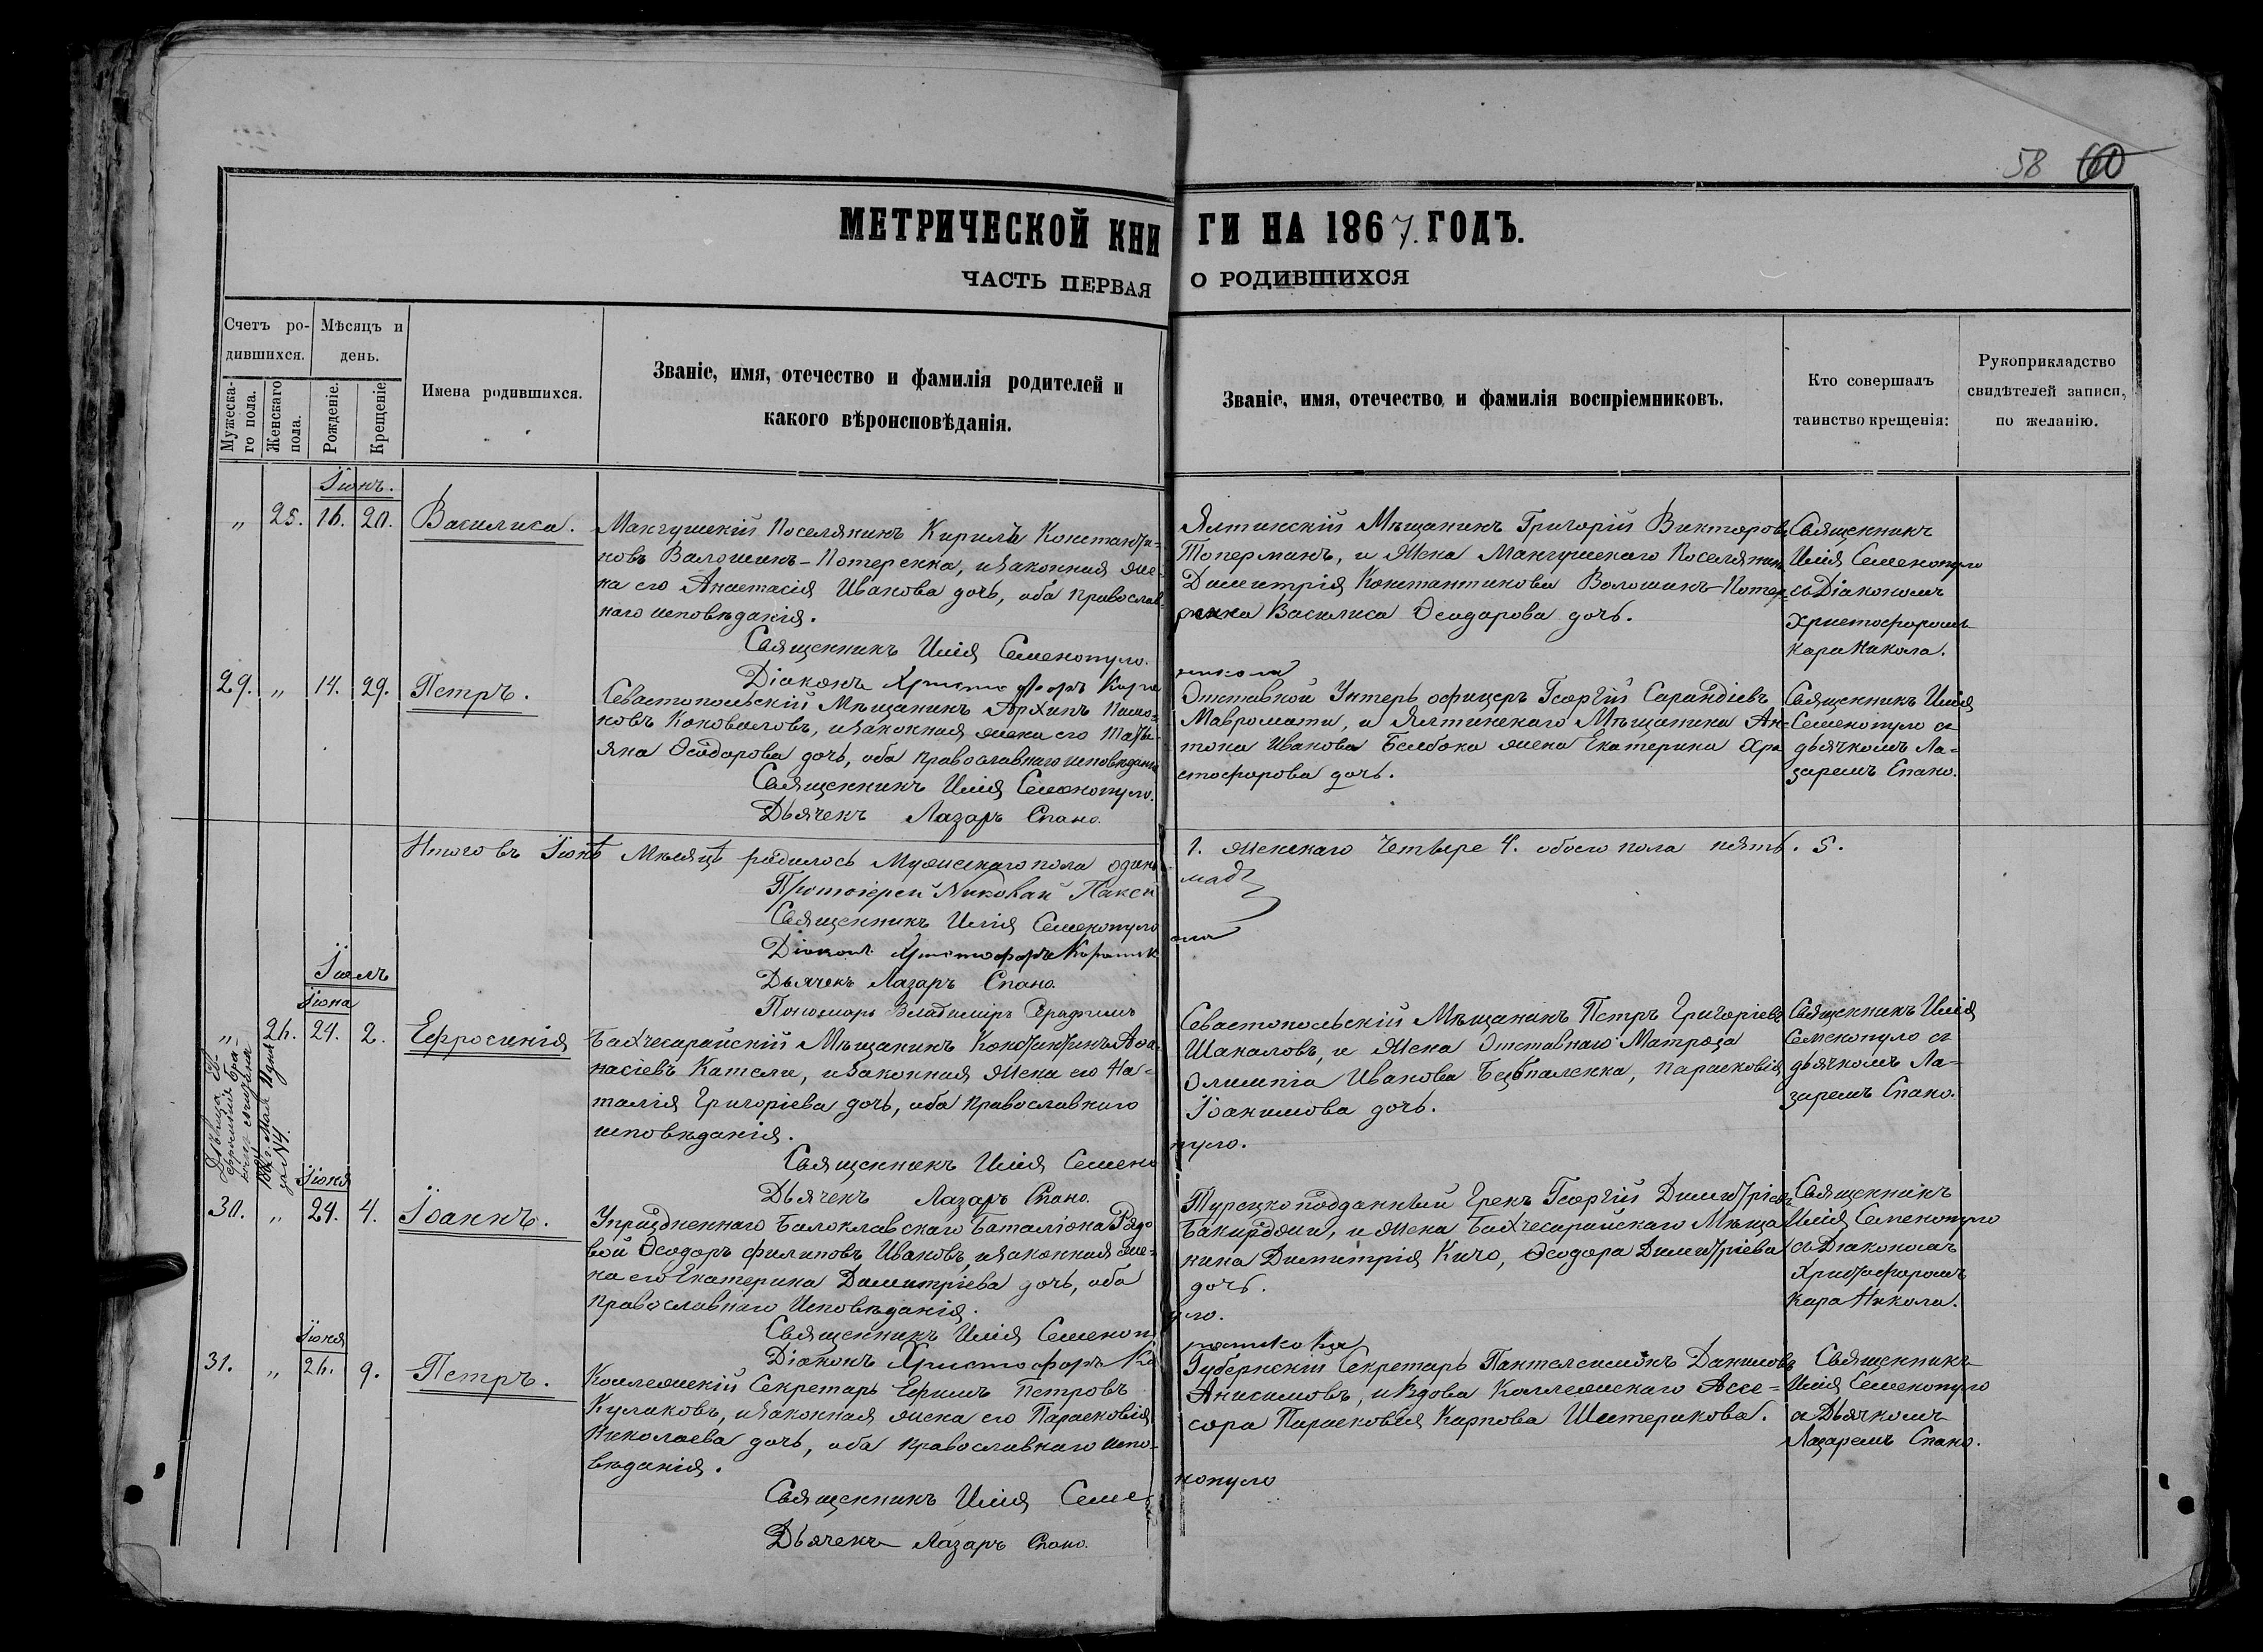 58 60
МЕТРИЧЕСКОЙ КНИГИ НА 1867. ГОДЪ.
ЧАСТЬ ПЕРВАЯ О РОДИВШИХСЯ
Счетъ ро-
дившихся.
Мѣсяцъ и
день.
Мужеска-
го пола.
Женскаго
пола.
Рожденіе.
Крещеніе.
Имена родившихся.
Званіе, имя, отечество и фамилія родителей и
какого вѣроисповѣданія.
Званіе, имя, отечество и фамилія воспріемниковъ.
Кто совершалъ
таинство крещенія:
Рукоприкладство
свидѣтелей записи,
по желанію.
Іюнь.
" 25. 16. 20. Василиса.
Мангушскій Поселянинъ Кирилъ Константи-
новъ Валошинъ-Потеренка, и законная же-
на его Анастасія Иванова дочь, оба православ-
наго исповѣданія.
Священникъ Илія Семенопуло.
Діаконъ Христофоръ Караникола
Ялтинскій Мѣщанинъ Григорій Викторовъ
Топерманъ, и Жена Мангушскаго Поселянина
Димитрія Константинова Волошинъ-Потер-
ренка Василиса Ѳеодорова дочь.
Священникъ
Илія Семенопуло
съ Діакономъ
Христофоромъ
Кара Никола.
29. " 14. 29. Петръ.
Севастопольскій Мѣщанинъ Архипъ Пимо-
новъ Коноваловъ, и законная жена его Татья-
яна Ѳеодорова дочь, оба православнаго исповѣданія
Священникъ Илія Семенопуло.
Дьячекъ Лазаръ Спано.
Отставной Унтеръ офицеръ Георгій Сарандіевъ
Мавромати, и Ялтинскаго Мѣщанина Ан-
тона Иванова Белбока жена Екатерина Хри
стофорова дочь.
Священникъ Илія
Семенопуло съ
дьячкомъ Ла-
заремъ Спано.
Итого въ Іюнѣ Мѣсяцѣ родилось Мужескаго пола одинъ 1. Женскаго Четыре 4. обоего пола пять. 5.
Протоіерей Николай Паксимадѣ
Священникъ Илія Семенопуло
Діаконъ Христофоръ Караникола
Дьячекъ Лазаръ Спано.
Пономарь Владимиръ Серафимъ
Іюль
Іюня
" 26. 24. 2. Ефросинія
Бахчесарайскій Мѣщанинъ Константинъ Аѳа-
насіевъ Катели, и законная Жена его На-
талія Григоріева дочь, оба православнаго
исповѣданія.
Священникъ Илія Семенопуло.
Дьячекъ Лазаръ Спано.
Севастопольскій Мѣщанинъ Петръ Григоріевъ
Шакаловъ, и Жена Отставнаго Матроза
Олимпія Иванова Безпаленка, Парасковія
Іоакимова дочь.
Священникъ Илія
Семенопуло съ
дьячкомъ Ла-
заремъ Спано.
Дѣвица
Ефросинія
за №4.
Іюня
30. " 24. 4. Іоаннъ.
Упраздненнаго Балоклавскаго Баталіона Рядо
вой Ѳеодоръ Филиповъ Ивановъ, и законная же-
на его Екатерина Димитріева дочь, оба
Православнаго Исповѣданія.
Священникъ Илія Семенопуло.
Діаконъ Христофоръ Караникола
Турецкоподданный Грекъ Георгій Димитріевъ
Бакирджи, и Жена Бахчесарайскаго Мѣща
нина Димитрія Кичо, Ѳеодора Димитріева
дочь.
Священникъ
Илія Семенопуло
съ Діакономъ
Христофоромъ
Кара Никола.
Іюня
31. " 26. 9. Петръ.
Коллежскій Секретарь Ефимъ Петровъ
Кулаковъ, и законная жена его Парасковія
Николаева дочь, оба православнаго испо-
вѣданія.
Священникъ Илія Семенопуло
Дьячекъ Лазаръ Спано.
Губернскій Секретарь Пантелеимонъ Даниловъ
Анисимовъ, и Вдова Коллежскаго Ассе-
сора Парасковія Карпова Шатерикова.
Священникъ
Илія Семенопуло
съ Дьячкомъ
Лазаремъ Спано.